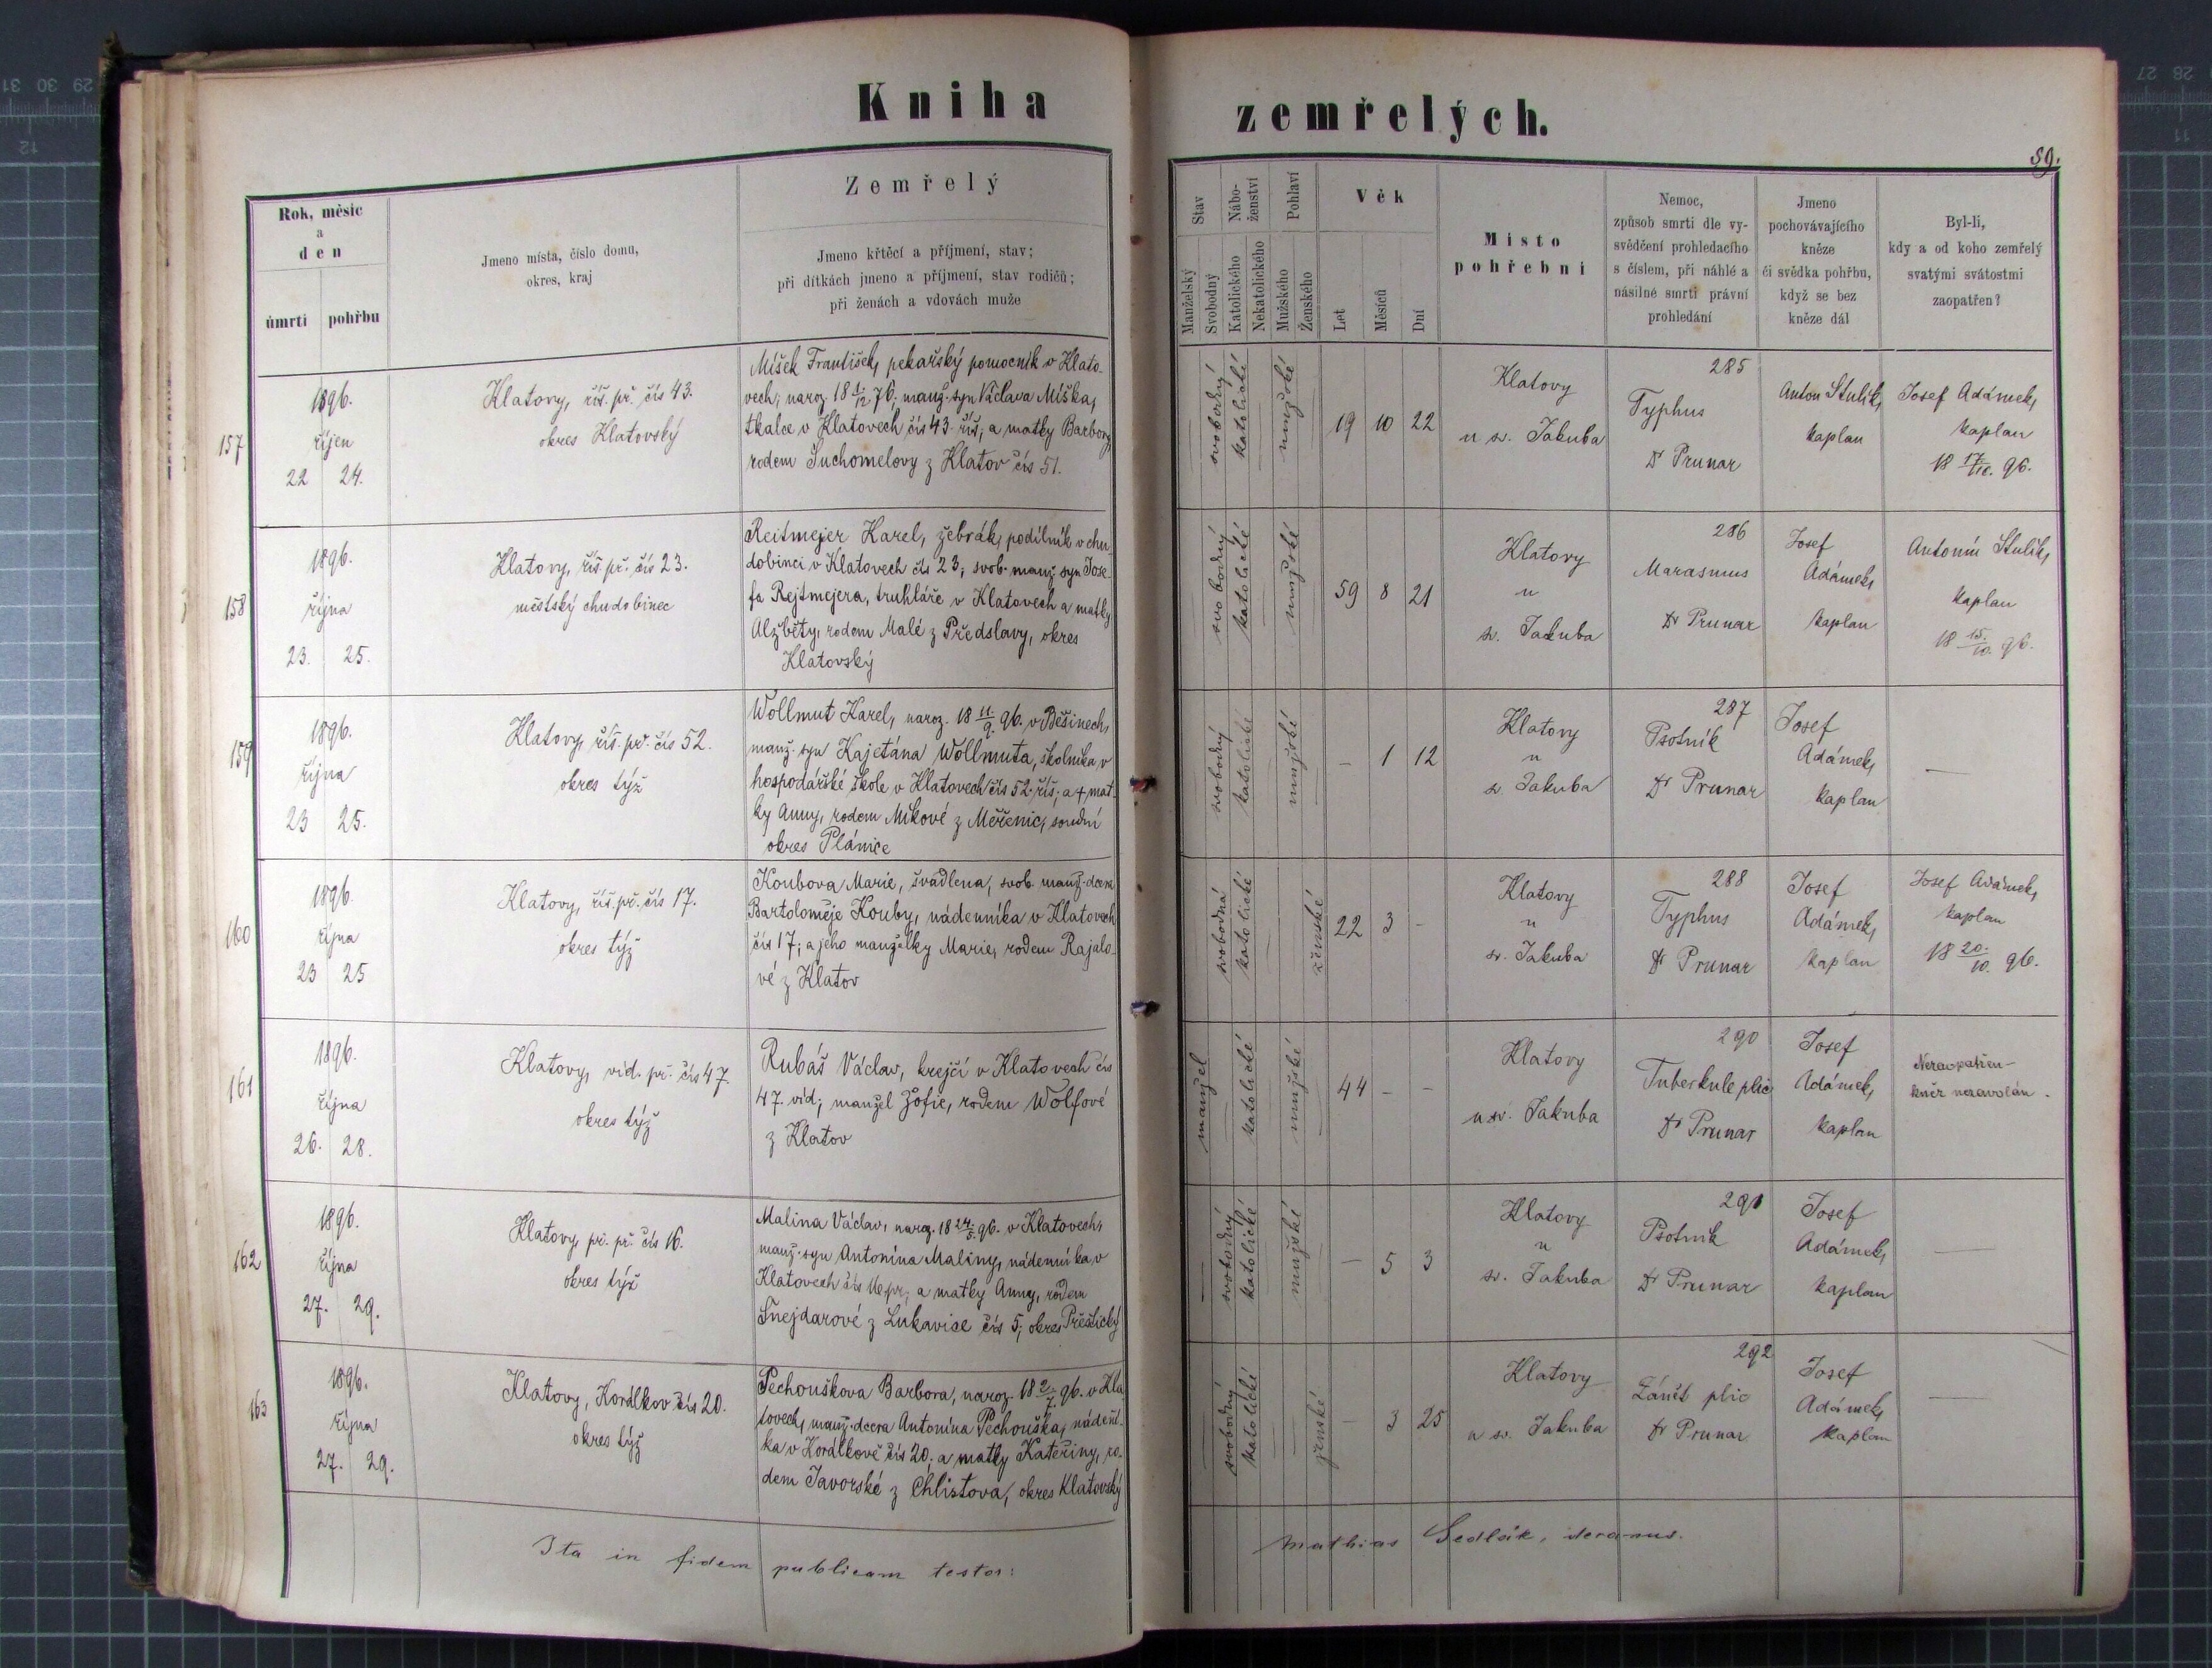 Kniha zemřelých.
59.
Rok, měsíc
a
den
úmrtí pohřbu
Jmeno místa, číslo domu,
okres, kraj
Zemřelý
Jmeno křtěcí a příjmení, stav;
při dítkách jmeno a příjmení, stav rodičů;
při ženách a vdovách muže
Stav
Manželský
Svobodný
Nábo-
ženství
Katolického
Nekatolického
Pohlaví
Mužského
Ženského
Věk
Let
Měsíců
Dní
Místo
pohřební
Nemoc,
způsob smrti dle vy-
svědčení prohledacího
s číslem, při náhlé a
násilné smrti právní
prohledání
Jmeno
pochovávajícího
kněze
či svědka pohřbu,
když se bez
kněze dál
Byl-li,
kdy a od koho zemřelý
svatými svátostmi
zaopatřen?
157
1896.
říjen
22 24.
Klatovy, říš. př. čís 43.
okres Klatovský
Míšek František, pekařský pomocník v Klato-
vech; naroz. 18 1/12 76; manž. syn Václava Míška,
tkalce v Klatovech čís 43 říš; a matky Barbory
rodem Suchomelovy z Klatov čís 51.
svobodný
katolické
mužské
19 10 22
Klatovy
u sv. Jakuba
285
Typhus
Dr Prunar
Anton Stulík,
kaplan
Josef Adámek,
kaplan
18 17/10. 96.
158
1896.
října
23. 25.
Klatovy, říš. př. čís 23.
městský chudobinec
Reitmejer Karel, žebrák, podílník v chu-
dobinci v Klatovech čís 23; svob. manž. syn Jose-
fa Rejtmejera, truhláře v Klatovech a matky
Alžběty, rodem Malé z Předslavy, okres
Klatovský
svobodný
katolické
mužské
59 8 21
Klatovy
u
sv. Jakuba
286
Marasmus
Dr Prunar
Josef
Adámek,
kaplan
Antonín Stulík,
kaplan
18 15./10. 96.
159
1896.
října
23 25.
Klatovy, říš. př. čís 52.
okres týž
Wollmut Karel, naroz. 18 11./9. 96. v Běšinech,
manž. syn Kajetána Wollmuta, školníka v
hospodářské škole v Klatovech čís 52. říš; a + mat-
ky Anny, rodem Mikové z Měřenic, soudní
okres Plánice
svobodný
katolické
mužské
- 1 12
Klatovy
u
sv. Jakuba
287
Psotník
Dr Prunar
Josef
Adámek,
kaplan
—
160
1896.
října
23 25
Klatovy, říš. př. čís 17.
okres týž
Koubova Marie, švadlena, svob. manž. dcera
Bartoloměje Kouby, nádenníka v Klatovech
čís 17; a jeho manželky Marie, rodem Rajalo-
vé z Klatov
svobodná
katolické
ženské
22 3 -
Klatovy
u
sv. Jakuba
288
Typhus
Dr Prunar
Josef
Adámek,
kaplan
Josef Adámek,
kaplan
18 20./10. 96.
161
1896.
října
26. 28.
Klatovy, víd. př. čís 47.
okres týž
Rubáš Václav, krejčí v Klatovech čís
47. víd; manžel Žofie, rodem Wolfové
z Klatov
manžel
katolické
mužské
44 - -
Klatovy
u sv. Jakuba
290
Tuberkule plic
Dr Prunar
Josef
Adámek,
kaplan
Nezaopatřen -
kněz nezavolán.
162
1896.
října
27. 29.
Klatovy, pr. př. čís 16.
okres týž
Malina Václav, naroz. 18 24./5. 96. v Klatovech,
manž. syn Antonína Maliny, nádenníka v
Klatovech čís 16 pr; a matky Anny, rodem
Šnejdarové z Lukavice čís 5; okres Přeštický
svobodný
katolické
mužské
- 5 3
Klatovy
u
sv. Jakuba
291
Psotník
Dr Prunar
Josef
Adámek,
kaplan
—
163
1896.
října
27. 29.
Klatovy, Korálkov čís 20.
okres týž
Pechouškova Barbora, naroz. 18 2./7. 96. v Kla-
tovech, manž. dcera Antonína Pechouška, nádení-
ka v Korálkově čís 20; a matky Kateřiny, ro-
dem Javorské z Chlistova, okres Klatovský
svobodný
katolické
ženské
- 3 25
Klatovy
u sv. Jakuba
292
Zánět plic
Dr Prunar
Josef
Adámek,
kaplan
—
Ita in fidem publicam testor:
Mathias Sedlák, decanus.